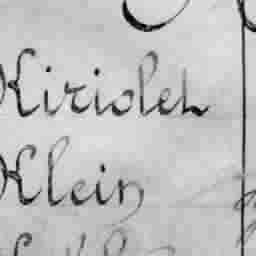 Kiriolet
Klein